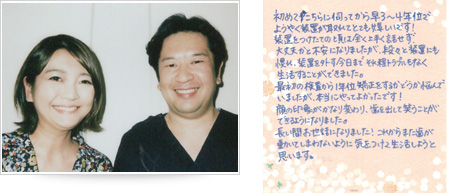 初めてこちらに伺ってから早3〜4年位で
ようやく装置が取れてとても嬉しいです!
装置をつけたての頃は全く上手く話せず
大丈夫かと不安になりましたが、段々と装置にも
慣れ、装置を外す今日までそれ程トラブルもなく
生活することができました。
最初の検査から1年位矯正をするかどうか悩んで
いましたが、本当にやってよかったです!
顔の印象がかなり変わり、歯を出して笑うことが
できるようになりました。
長い間お世話になりました!これからまた歯が
動いてしまわないように気をつけて生活しようと
思います。